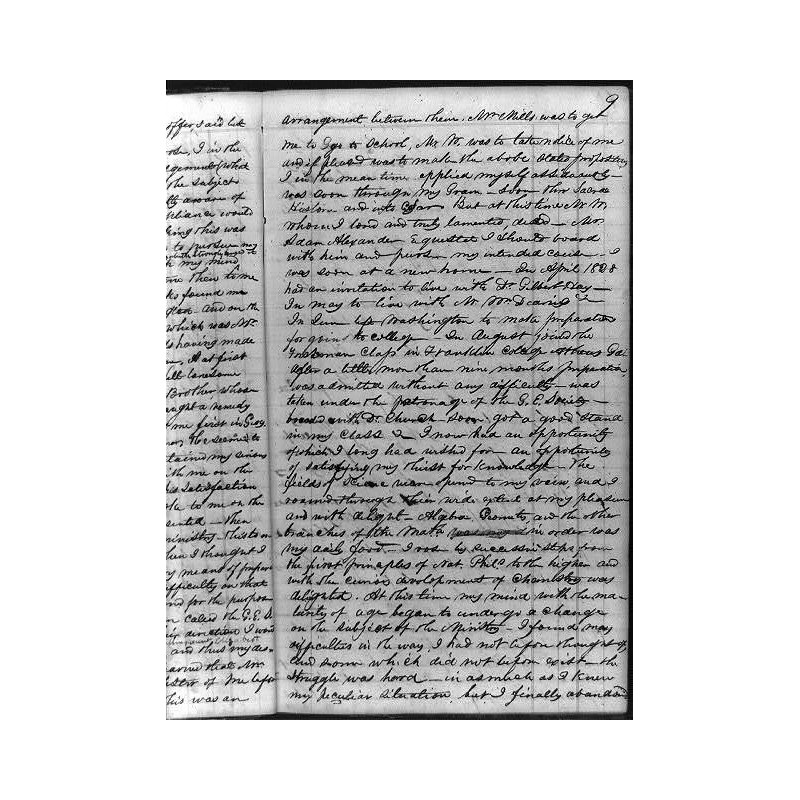 9
arrangement between them. Mr Mills was to get
me to go to School, Mr W. was to take notice of me
and if pleased was to make the above stated proposition
I in the mean time applied myself assiduously
was soon through my Gram soon thro Sacred
Historia and into But at this time Mr W.
whom I loved and truly lamented died — Mr.
Adam Alexander requested I should board
with him and pursue my intended course. I
was soon at a new home — In April 1828
had an invitation to live with Dr Gilbert Hay —
In may to live with Mr Wm Dearing
In June left Washington to make preparation
for going to college — In August joined the
Freshman Class in Franklin College Athens Ga.
after a little more than nine months preparation,
was admitted without any difficulty — was
taken under the patronage of the G. E. Society —
boarded with Dr Church — soon got a good stand
in my class I now had an opportunity
of which I long had wished for — an opportunity
of satisfying my thirst for knowledge — The
fields of science were opened to my view, and I
roamed through their wide extent at my pleasure
and with delight — Algebra, Geometry, and the other
branches of the Math in order was
my daily food — I rose by successive steps from
the first principles of Nat Phil. to the higher and
with the curious development of Chemistry was
delighted. At this time my mind with the ma-
turity of age began to undergo a change
on the subject of the Ministry — I found many
difficulties in the way, I had not before thought of,
and some which did not before exist — the
struggle was hard — in as much as I knew
my peculiar situation but I finally abandoned
offer, said
I in the
the subject
aware of
would
this was
to pursue
my mind
then some
found me
and on the
which was Mr.
having made
at first
lonesome
Brother whose
a remedy
me first in
He seemed to
with me on the
his satisfaction
to me on the
then
ministry
when I thought I
my means of
difficulty on that
and for the purpose
called the G. E. S.
direction I would
and thus my
that Mr.
of me before
this was an